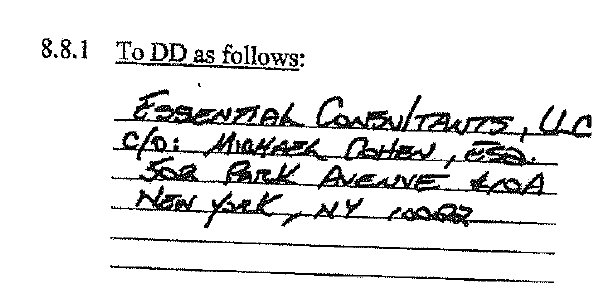 8.8.1 To DD as follows:
ESSENTIAL CONSULTANTS, LLC
C/O: MICHAEL COHEN, ESQ.
502 PARK AVENUE #10A
NEW YORK, NY 10022